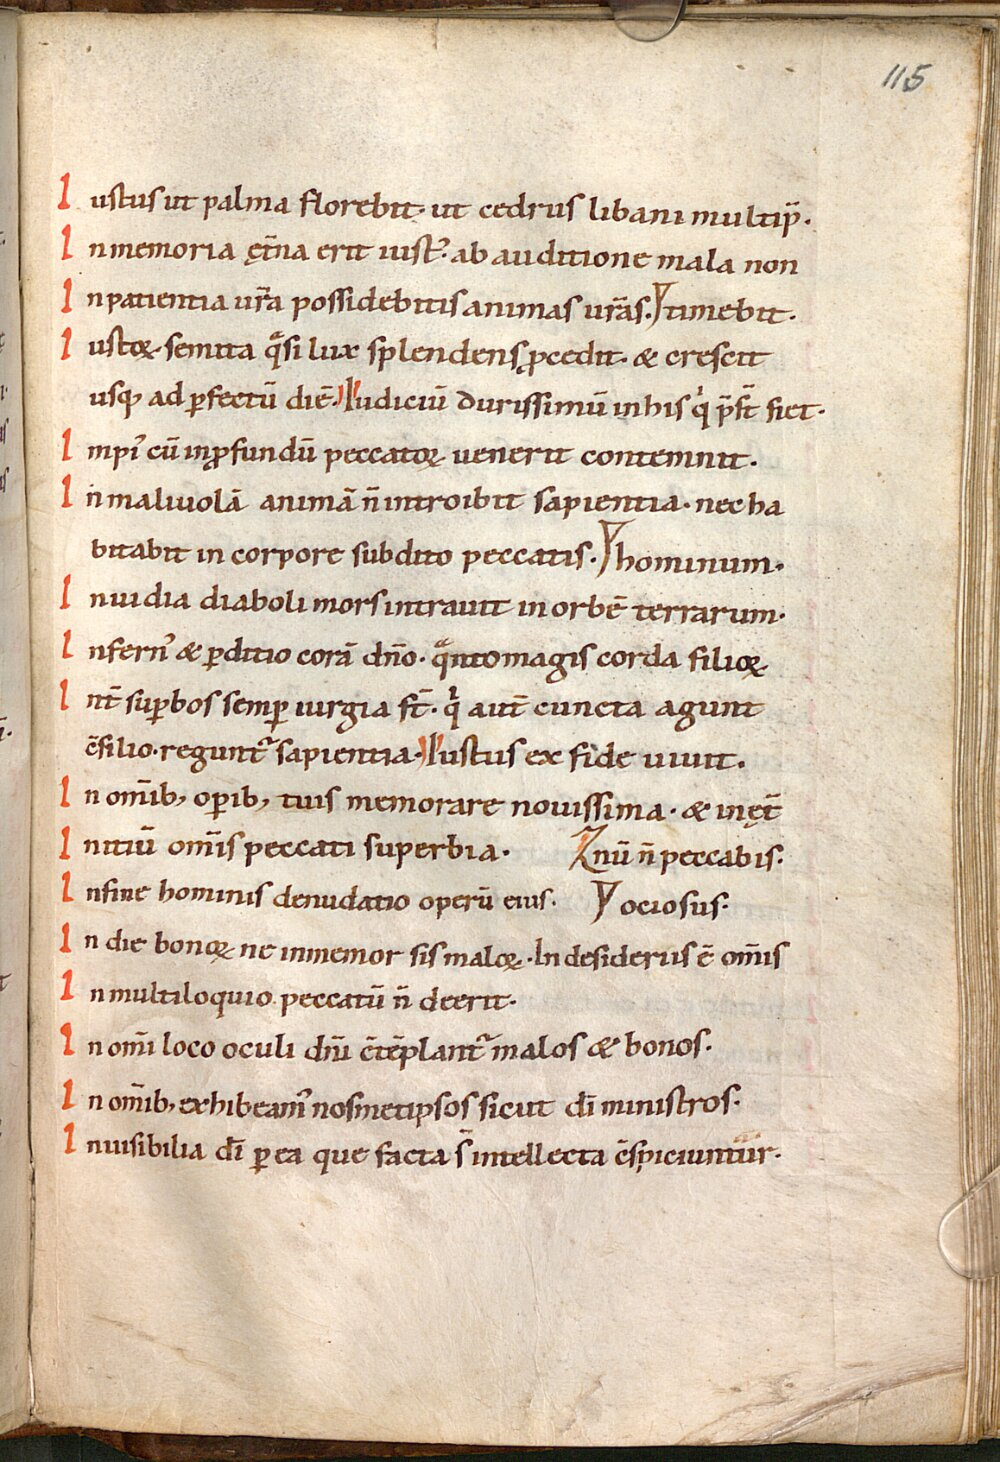 115
Iustus ut palma florebit· ut cedrus libani multip̄.
In memoria ęt̄na erit iust᾿· ab auditione mala non
In patientia ur̄a possidebitis animas ur̄as. timebit.
Iustoꝝ semita qͣsi lux splendens ꝓcedit· & crescit
usq; ad ꝑfectū diē· Iudiciū durissimū in his qͥ p̄sт̄ fiet·
Impi᾿ cū in ꝓfundū peccatoꝝ uenerit contemnit.
In maliuolā animā n̄ introibit sapientia· nec ha
bitabit in corpore subdito peccatis. hominum.
Inuidia diaboli mors intrauit in orbē terrarum.
Infern᾿ & ꝑditio corā dn̄o· qͣnto magis corda filioꝝ
Int̄ suꝑbos semꝑ iurgia st̄· qͥ aut̄ cuncta agunt
c̄silio· regunt᾿ sapientia· Iustus ex fide uiuit.
In om̄ib; oꝑib; tuis memorare nouissima· & in ęt̄
Initiū om̄is peccati superbia· nū n̄ peccabis.
In fine hominis denudatio operū eius. ociosus.
In die bonoꝝ ne inmemor sis maloꝝ· In desideriis ē om̄is
In multiloquio peccatū n̄ deerit.
In om̄i loco oculi dn̄i c̄tēplant᾿ malos & bonos.
In om̄ib; exhibeam᾿ nosmetipsos sicut dī ministros.
Inuisibilia dī ꝑ ea que facta s̄ intellecta c̄spiciuntur.